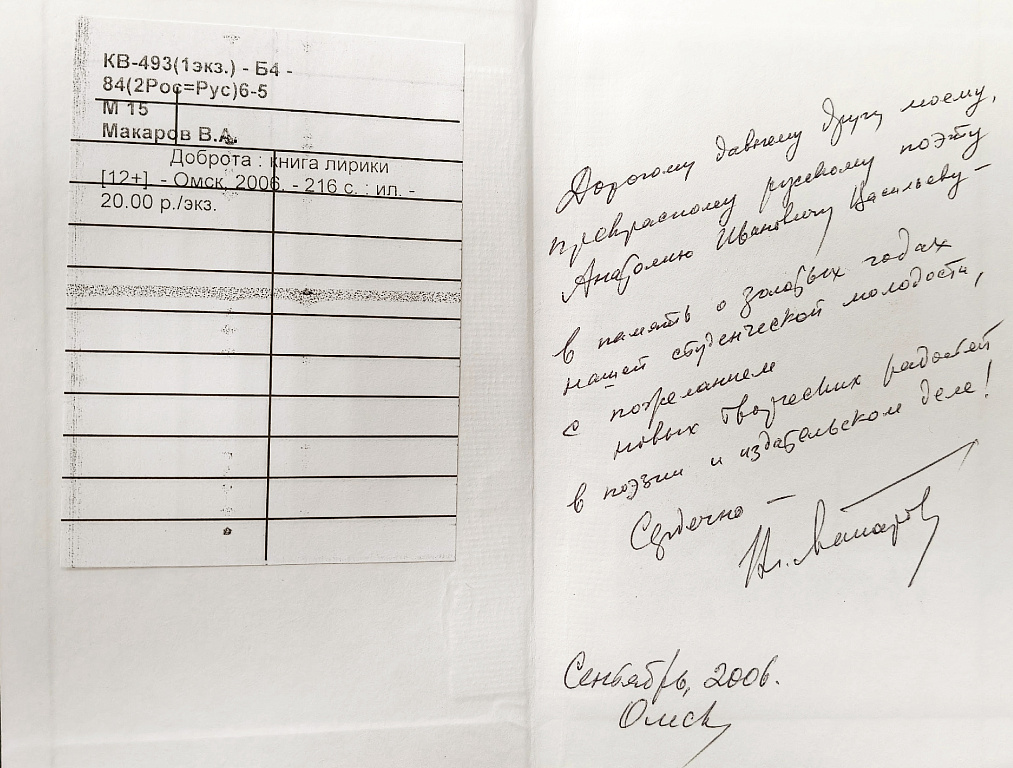 КВ-493(1экз.) - Б4 -
84(2Рос=Рус)6-5
М 15
Макаров В.А.
Доброта : книга лирики
[12+]. - Омск, 2006. - 216 с. : ил. -
20.00 р./экз.
Дорогому давнему другу моему,
прекрасному русскому поэту
Анатолию Ивановичу Васильеву –
в память о золотых годах
нашей студенческой молодости,
с пожеланием
новых творческих радостей
в поэзии и издательском деле!
Сердечно –
Вл. Макаров
Сентябрь, 2006.
Омск